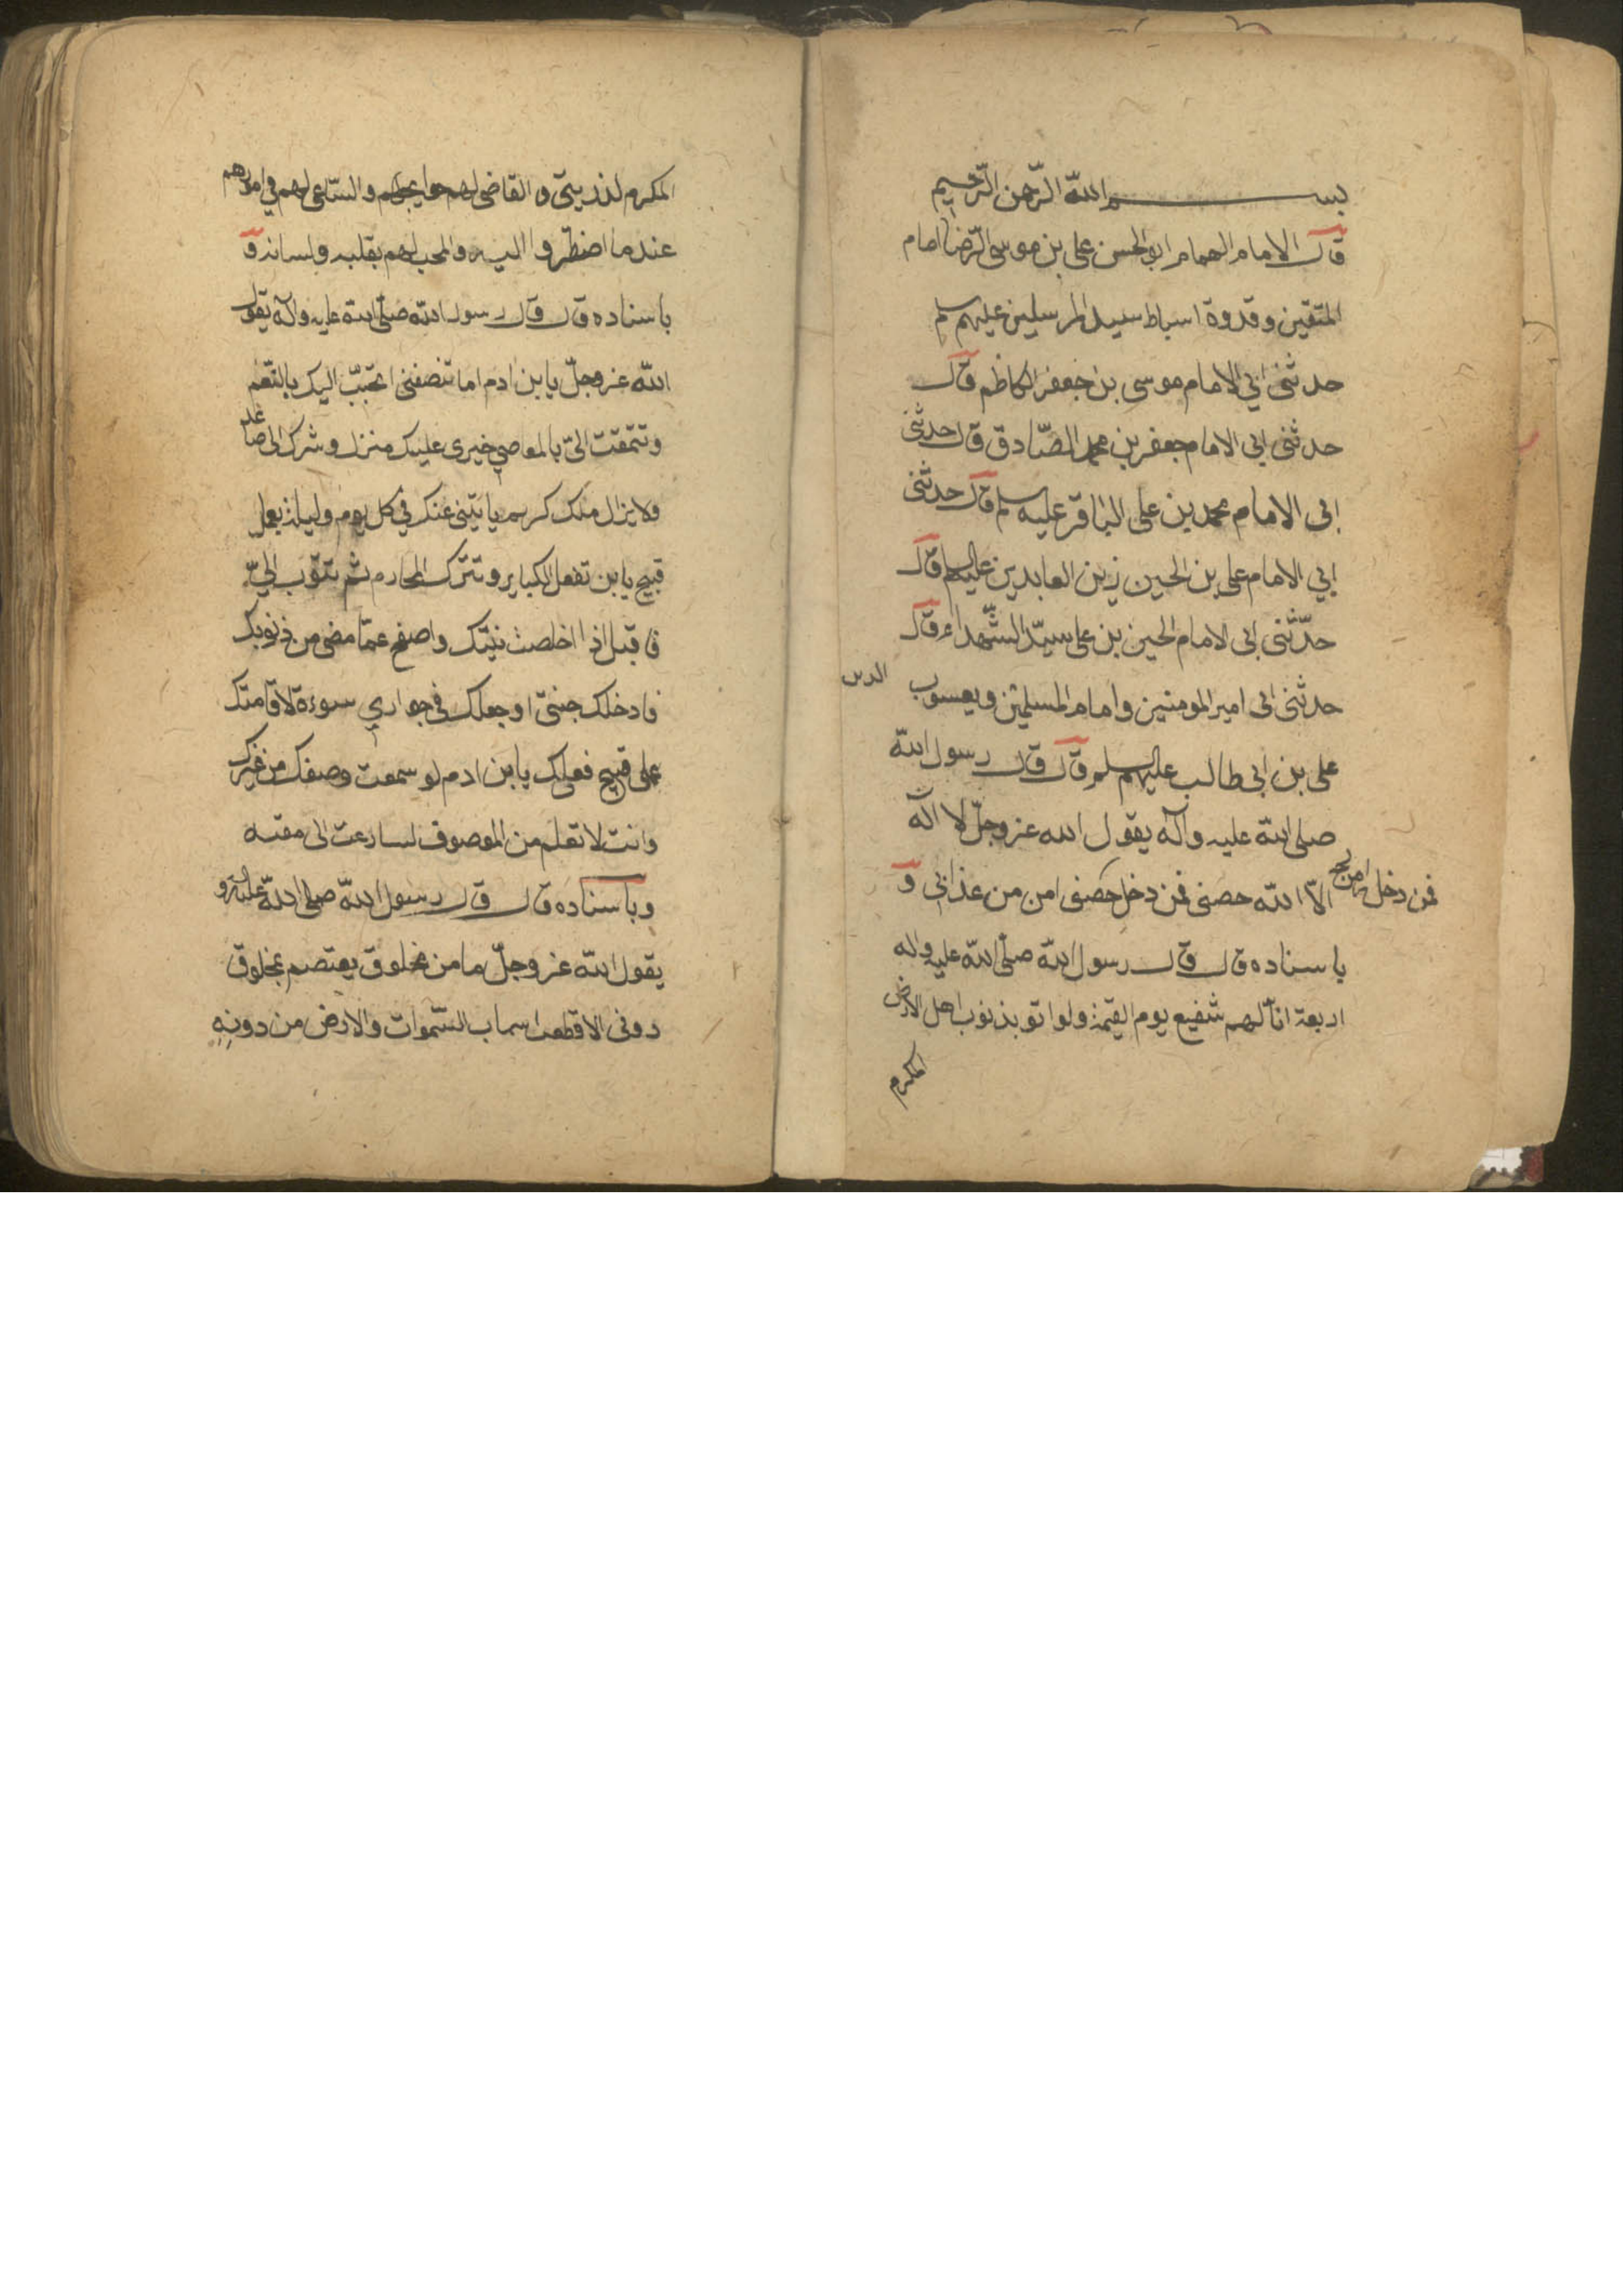 بسم الله الرّحمن الرّحيم
قال الامام الهمام ابو الحسن علی بن موسی الرّضا امام
المتّقين و قدوة اسباط سيد المرسلين عليهم سلم
حدثنی ابي الامام موسی بن جعفر الكاظم قال
حدثنی ابی الامام جعفر بن محمد الصّادق قال حدثنی
ابی الامام محمد بن علی الباقر عليه سلم قال حدثنی
ابي الامام علی بن الحسين زين العابدين عليهم قال
حدّثنی ابی الامام الحسين بن علی سيّد الشّهداء قال
حدثنی ابی امير المومنين وامام المسلمين ويعسوب الدين
علی بن ابی طالب عليهم سلم قال قال رسول الله
صلی الله عليه وآله يقول الله عز وجلّ لا اله
الّا الله حصنی فمن دخل حصنی امن من عذابی و
فمن دخله امن
باسناده قال قال رسول الله صلّی الله عليه واله
اربعة انا لهم شفيع يوم القيمة ولو اتو بذنوب اهل الارض
المكرم
المكرم لذريتی و القاضی لهم حوايجهم والسّاعی لهم في امورهم
عندما اضطروا اليه والمحب لهم بقلبه ولسانه و
باسناده قال قال رسول الله صلّی الله عليه وآله يقول
الله عز وجلّ يا بن ادم اما تنصفنی اتحبّب اليك بالنّعم
وتتمقت الیّ بالمعاصی خيری عليك منزل وشرك الی صاعد
ولا يزال ملك كريم ياتينی عنك في كل يوم وليلة بعمل
قبيح يا بن تفعل الكباير وتترك المحارم ثم تتوب الیّ
فاقبل اذا اخلصت نيتك واصفح عمّا مضی من ذنوبك
فادخلك جنتی او جعلك فی جواري سوءة لاقامتك
علی قبيح فعلك يا بن ادم لو سمعت وصفك من غيرك
وانت لا تعلم من الموصوف لسارعت الی مقته
وباسناده قال قال رسول الله صلی الله عليه و
يقول الله عز وجلّ ما من مخلوق يعتصم بمخلوق
دونی الا قطعت اسباب السّموات والارض من دونه